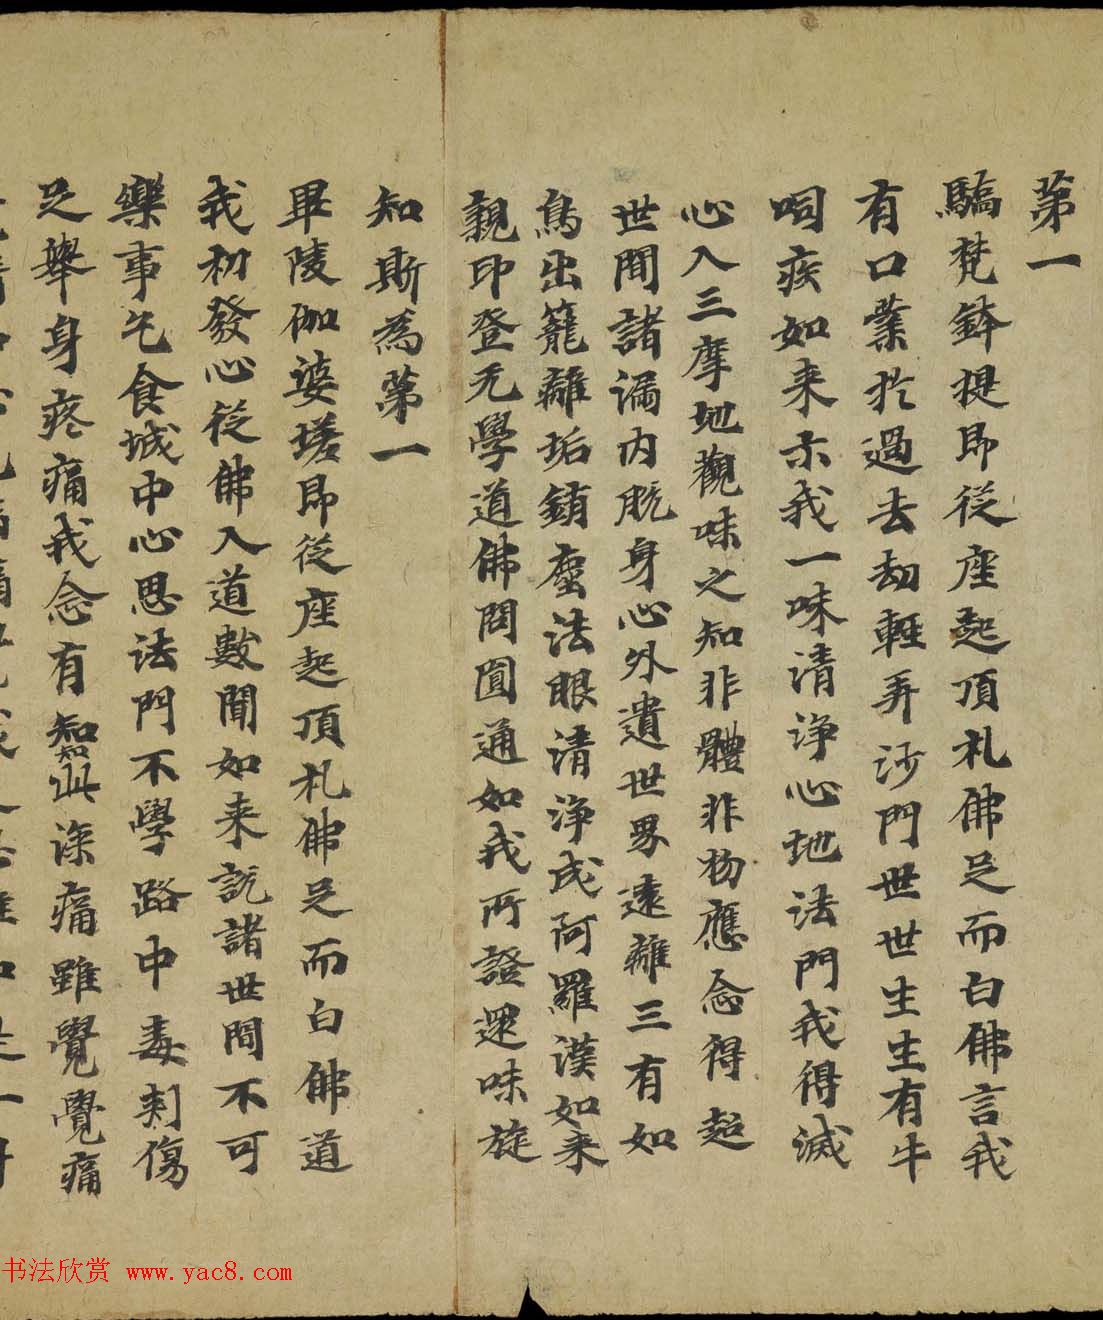 第一
驕梵鉢提即從座起頂礼佛足而白佛言我
有口業於過去劫輕弄沙門世世生生有牛
呞疾如来示我一味清浄心地法門我得滅
心入三摩地觀味之知非體非物應念得超
世間諸漏内脱身心外遺世界遠離三有如
鳥出籠離垢銷塵法眼清浄成阿羅漢如来
親印登无學道佛問圓通如我所證還味旋
知斯為第一
畢陵伽婆蹉即從座起頂礼佛足而白佛道
我初發心從佛入道數聞如来說諸世間不可
樂事乞食城中心思法門不學路中毒刺傷
足舉身疼痛我念有知知此深痛雖覺覺痛
书法欣赏 www.yac8.com